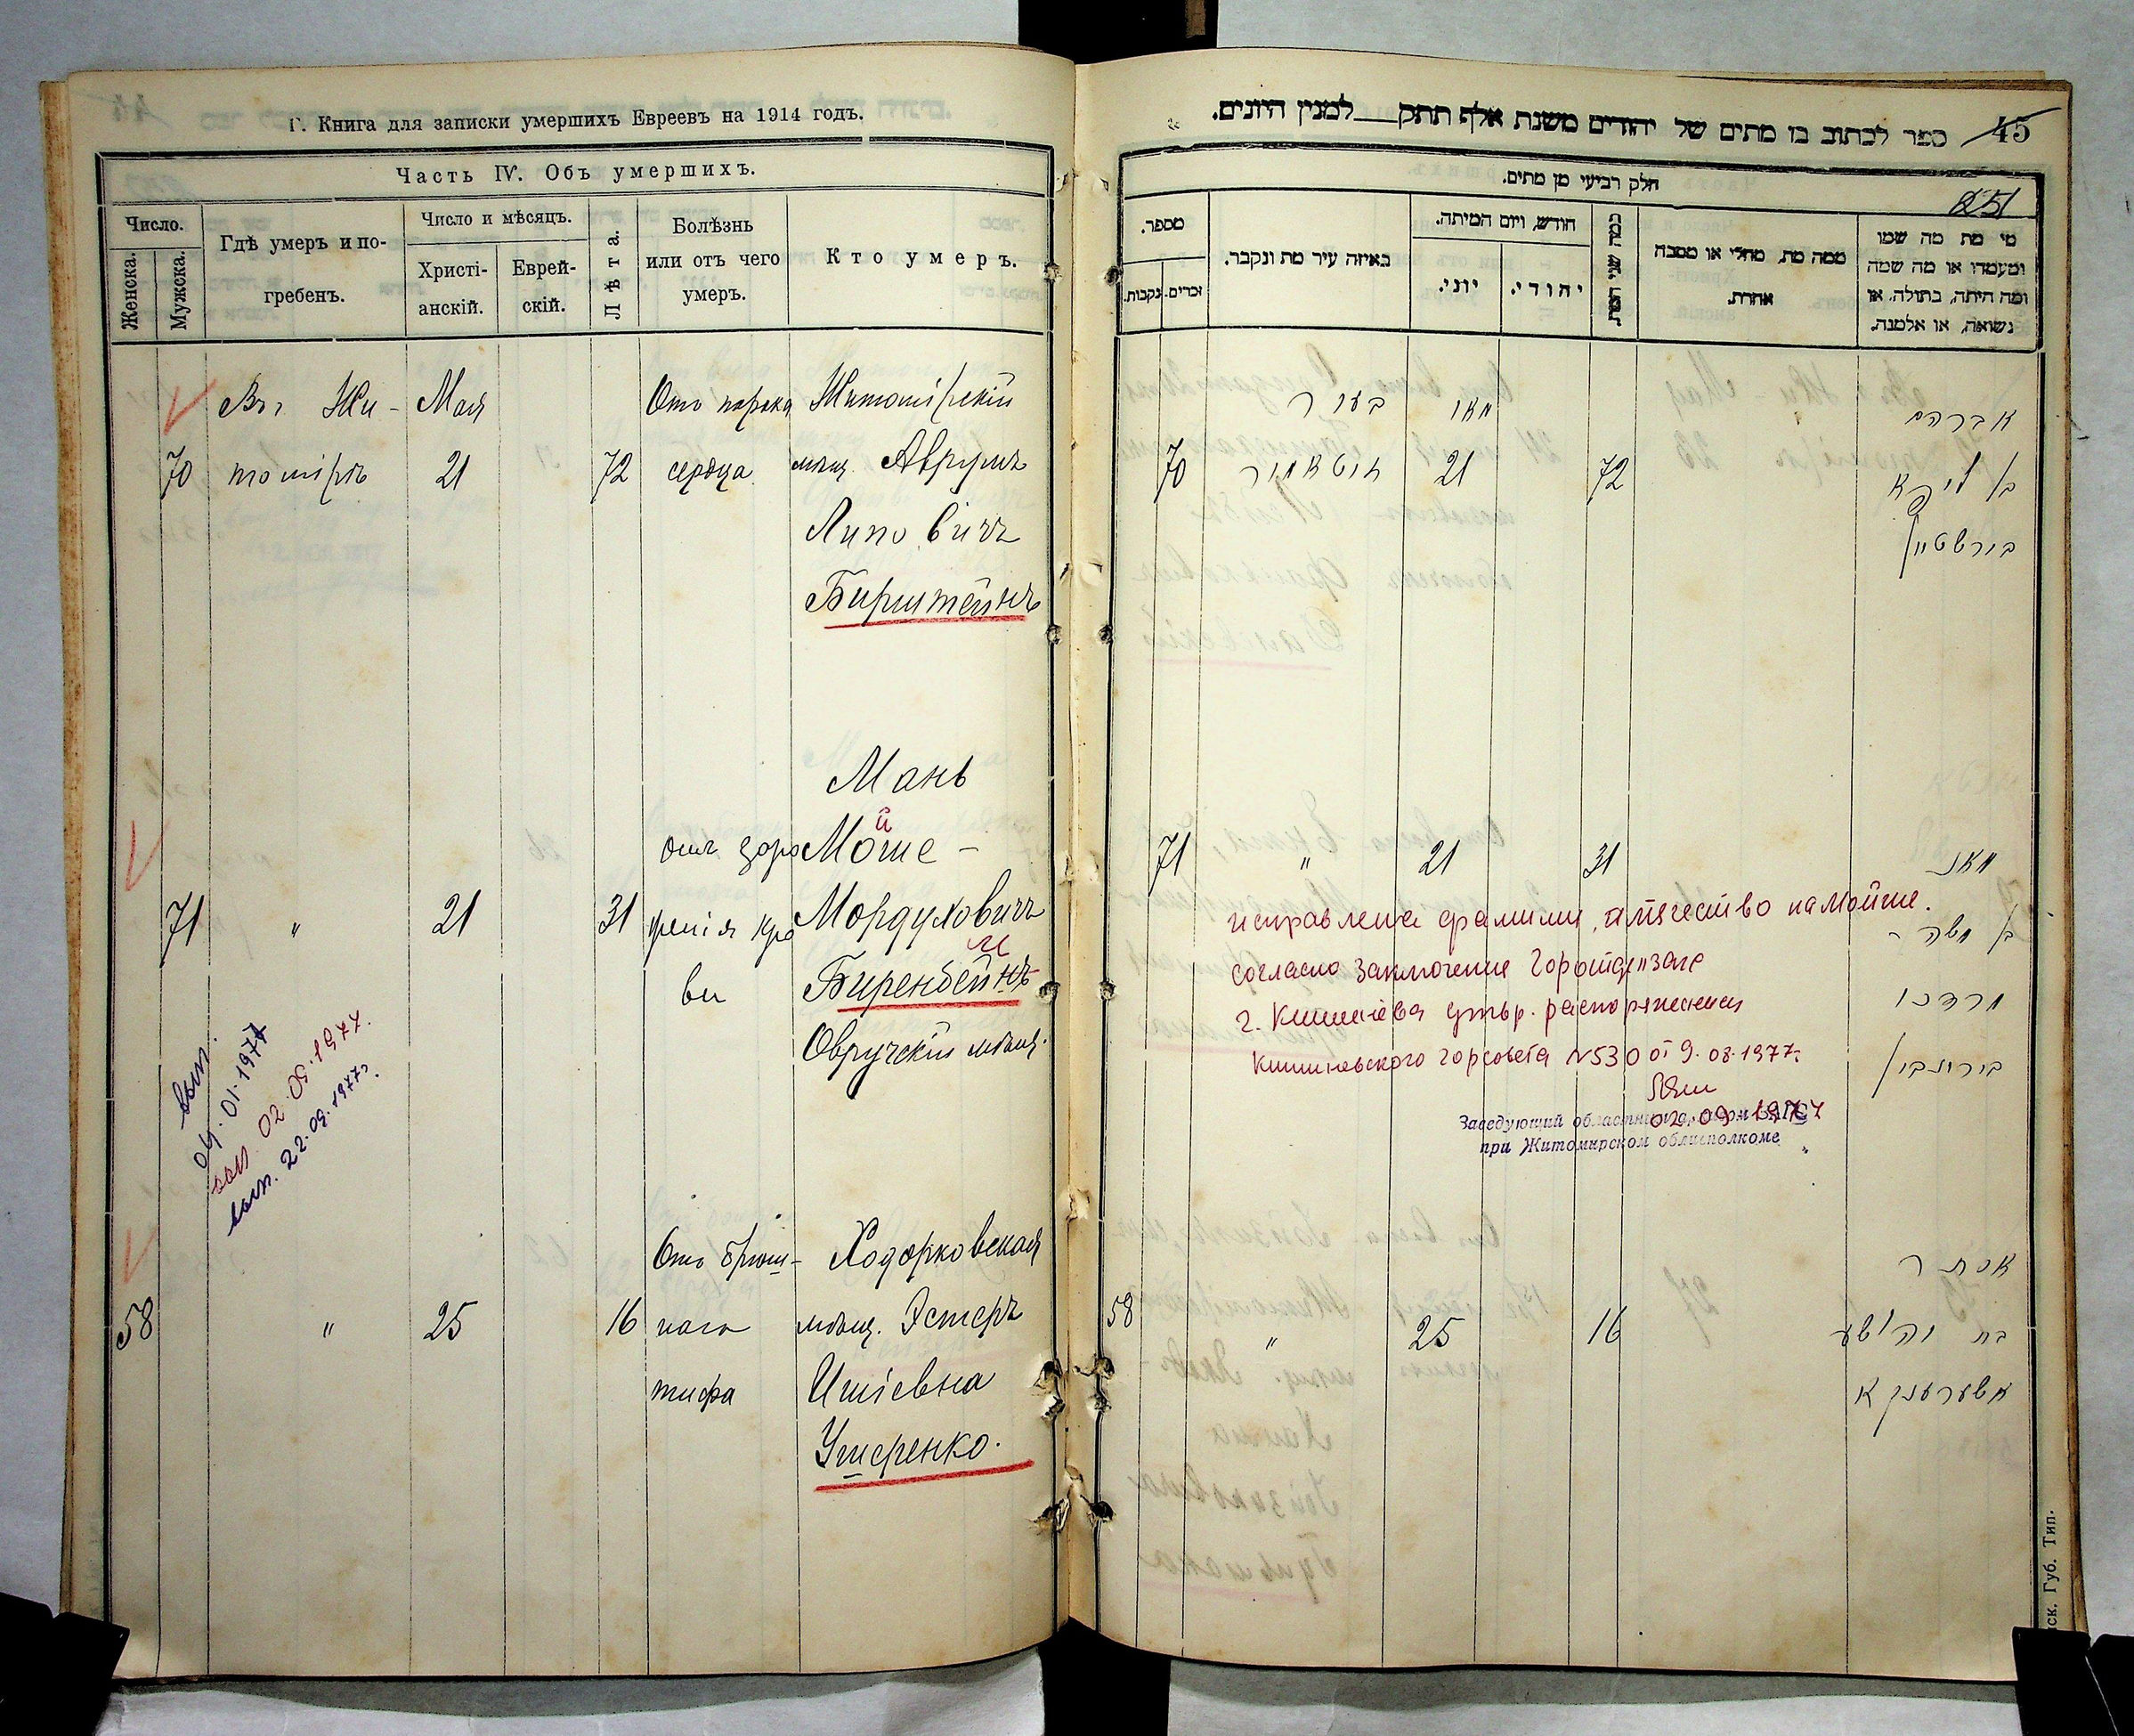 Г. Книга для записки умершихъ Евреевъ на 1914 годъ.
Часть IV. Объ умершихъ.
Число.
Женска.
Мужска.
Гдѣ умеръ и по-
гребенъ.
Число и мѣсяцъ.
Христі-
анскій.
Еврей-
скій.
Лѣта.
Болѣзнь
или отъ чего
умеръ.
Кто умеръ.
Въ г. Жи- Мая Отъ порока Житомірскій
70 томірѣ 21 72 сердца мѣщ. Аврумъ
Липовичъ
Бирштейнъ
Мань
Мойше -
71 " 21 31 Мордуховичъ
ви Биренбейнъ
Овручскій мѣщ.
04.01.1977
02.09.1977.
22.09.1977г.
Отъ брюш- Ходорковская
58 " 25 16 наго мѣщ. Эстеръ
тифа Ишіевна
Ушеренко.
ספר לכתוב בו מתים של יהודים משנת אלף תתק למנין היונים.
45
251
חלק רביעי מן מתים.
מספר.
נקבות.
זכרים.
באיזה עיר מת ונקבר.
חודש, ויום המיתה.
יוני.
יהודי.
כמה שני המת
ממה מת, מחלי או מסבה
אחרת.
מי מת מה שמו
ומעמדו או מה שמה
ומה היתה, בתולה, או
נשואה, או אלמנה.
אברהם
70 21 72 בן ליפא
בירשטיין
71 " 21 31 מאן
исправлена фамилия, отчество на Мойше.
בן משה -
согласно заключения
מרדכי
г. Кишинёва утвр. распоряжением
Кишиневского горсовета №530 от 9.08.1977г.
בירינביין
02.09.1977
Заведующий областным архивом ЗАГС
при Житомирском облисполкоме
אסתר
58 " 25 16 בת יהושע
אושערענקא
ск. Губ. Тип.